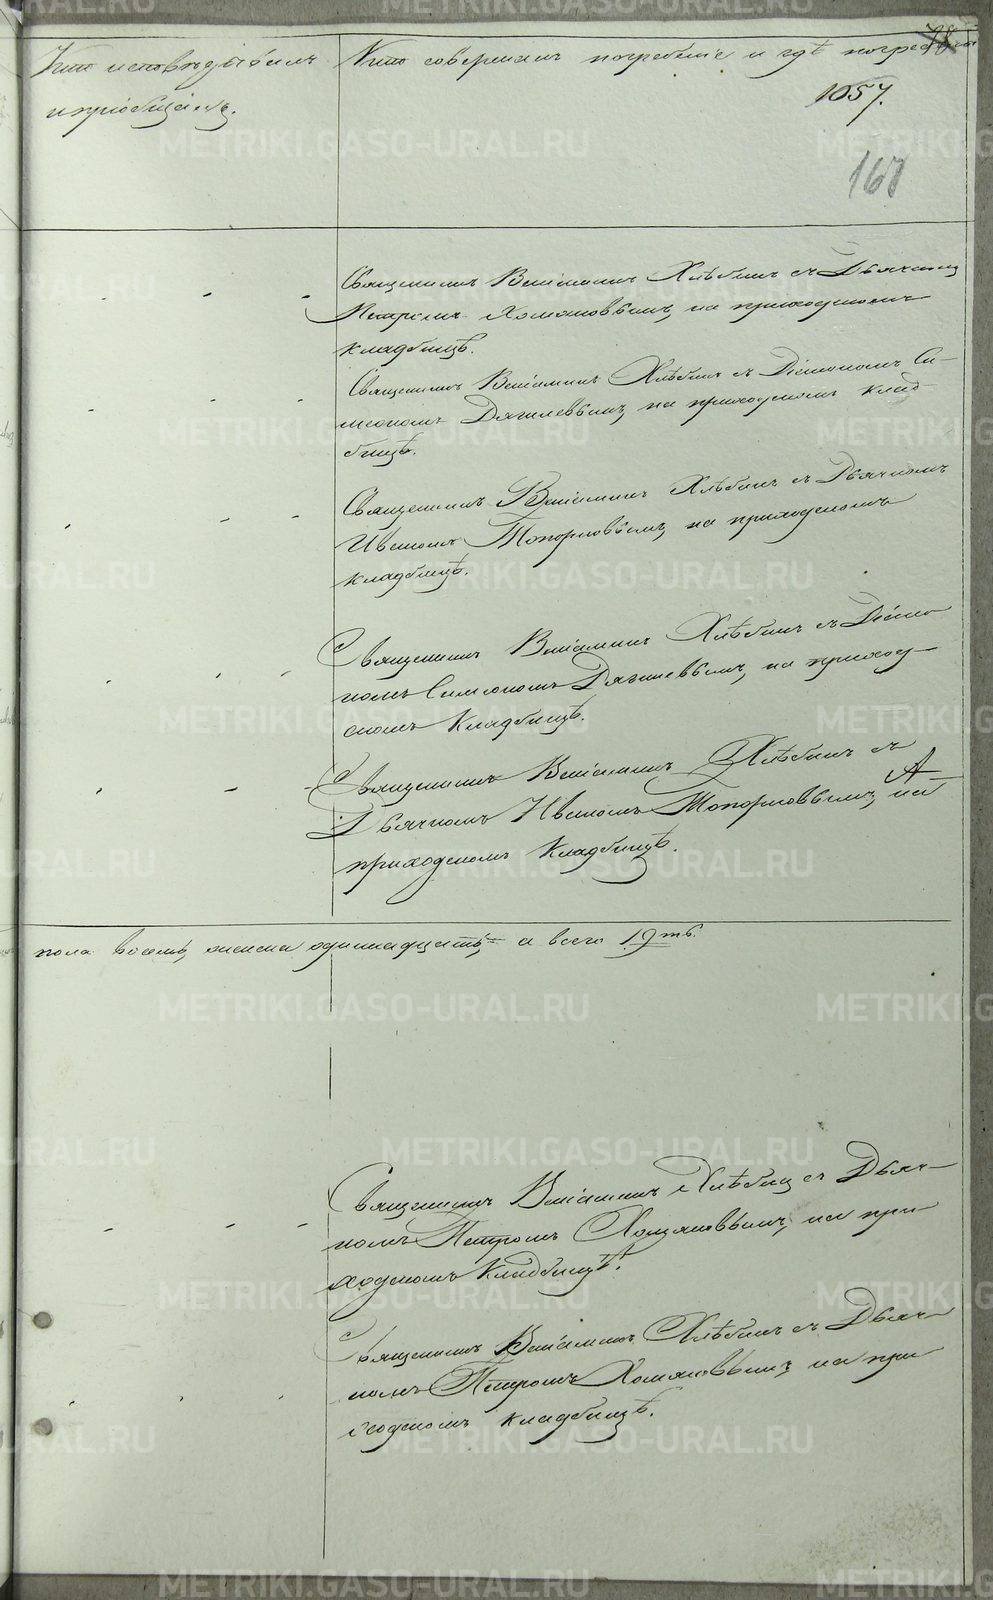 78
Кто исповѣдывалъ
и пріобщалъ.
Кто совершалъ погребеніе и гдѣ погребены
1057.
168
Священникъ Веніаминъ Хлѣбинъ съ Дьячкомъ
Петромъ Хомяковымъ, на приходскомъ
кладбищѣ.
Священникъ Веніаминъ Хлѣбинъ съ Діакономъ Си-
меономъ Дягилевымъ, на приходскомъ клад
бищѣ.
Священникъ Веніаминъ Хлѣбинъ съ Дьячкомъ
Иваномъ Топорковымъ, на приходскомъ
кладбищѣ.
Священникъ Веніаминъ Хлѣбинъ съ Діако
номъ Симеономъ Дягилевымъ, на приход-
скомъ кладбищѣ.
Священникъ Веніаминъ Хлѣбинъ съ
Дьячкомъ Иваномъ Топорковымъ, на
приходскомъ кладбищѣ.
пола восемь, женска одиннадцать, а всего 19ть.
Священникъ Веніаминъ Хлѣбинъ съ Дьяч-
комъ Петромъ Хомяковымъ, на при-
ходскомъ кладбищѣ.
Священникъ Веніаминъ Хлѣбинъ съ Дьяч-
комъ Петромъ Хомяковымъ, на при
ходскомъ кладбищѣ.
METRIKI.GASO-URAL.RU